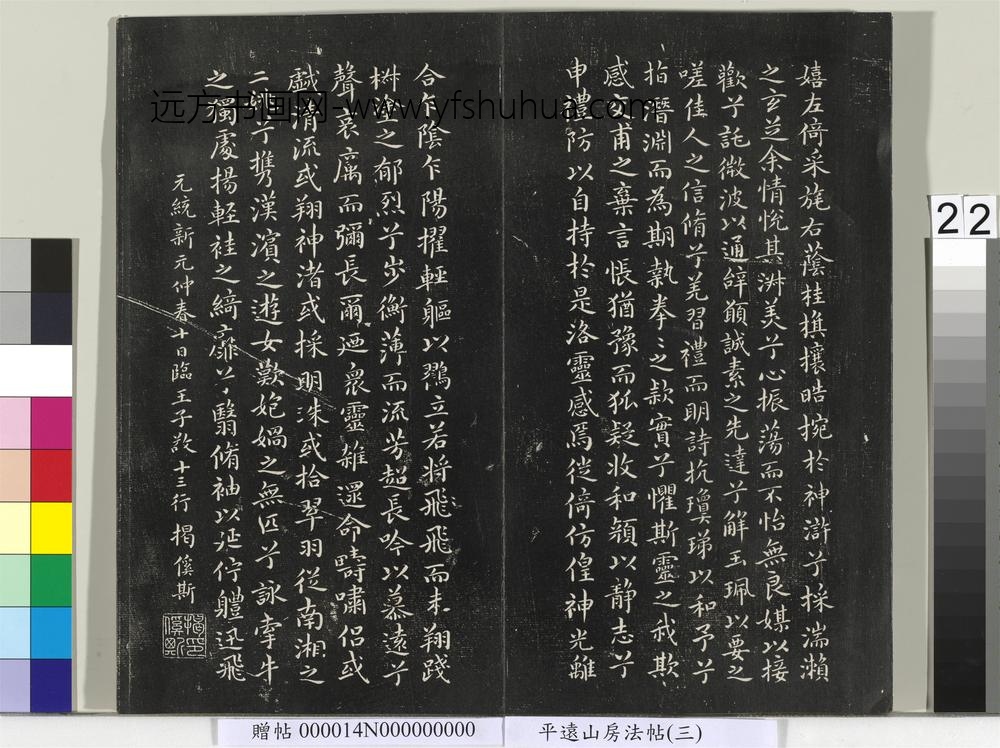 嬉左倚采旄右蔭桂旗攘皓捥於神滸兮採湍瀨
之玄芝余情悅其淑美兮心振蕩而不怡無良媒以接
歡兮託微波以通辭願誠素之先達兮解玉珮以要之
嗟佳人之信脩兮羌習禮而明詩抗瓊珶以和予兮
指潛淵而為期執拳〻之款實兮懼斯靈之我欺
感交甫之棄言悵猶豫而狐疑收和顏以靜志兮
申禮防以自持於是洛靈感焉徙倚仿偟神光離
合乍陰乍陽擢輕軀以鶴立若將飛飛而未翔踐
椒塗之郁烈兮步衡薄而流芳超長吟以慕遠兮
聲哀厲而彌長爾迺衆靈雜遝命疇嘯侶或
戲清流或翔神渚或採明珠或拾翠羽從南湘之
二姚兮攜漢濱之遊女歎匏媧之無匹兮詠牽牛
之獨處揚輕袿之綺靡兮翳脩袖以延佇體迅飛
元統新元仲春十日臨王子敬十三行 揭傒斯
揭印傒斯
远方书画网-www.yfshuhua.com
22
贈帖 000014N000000000
平遠山房法帖(三)